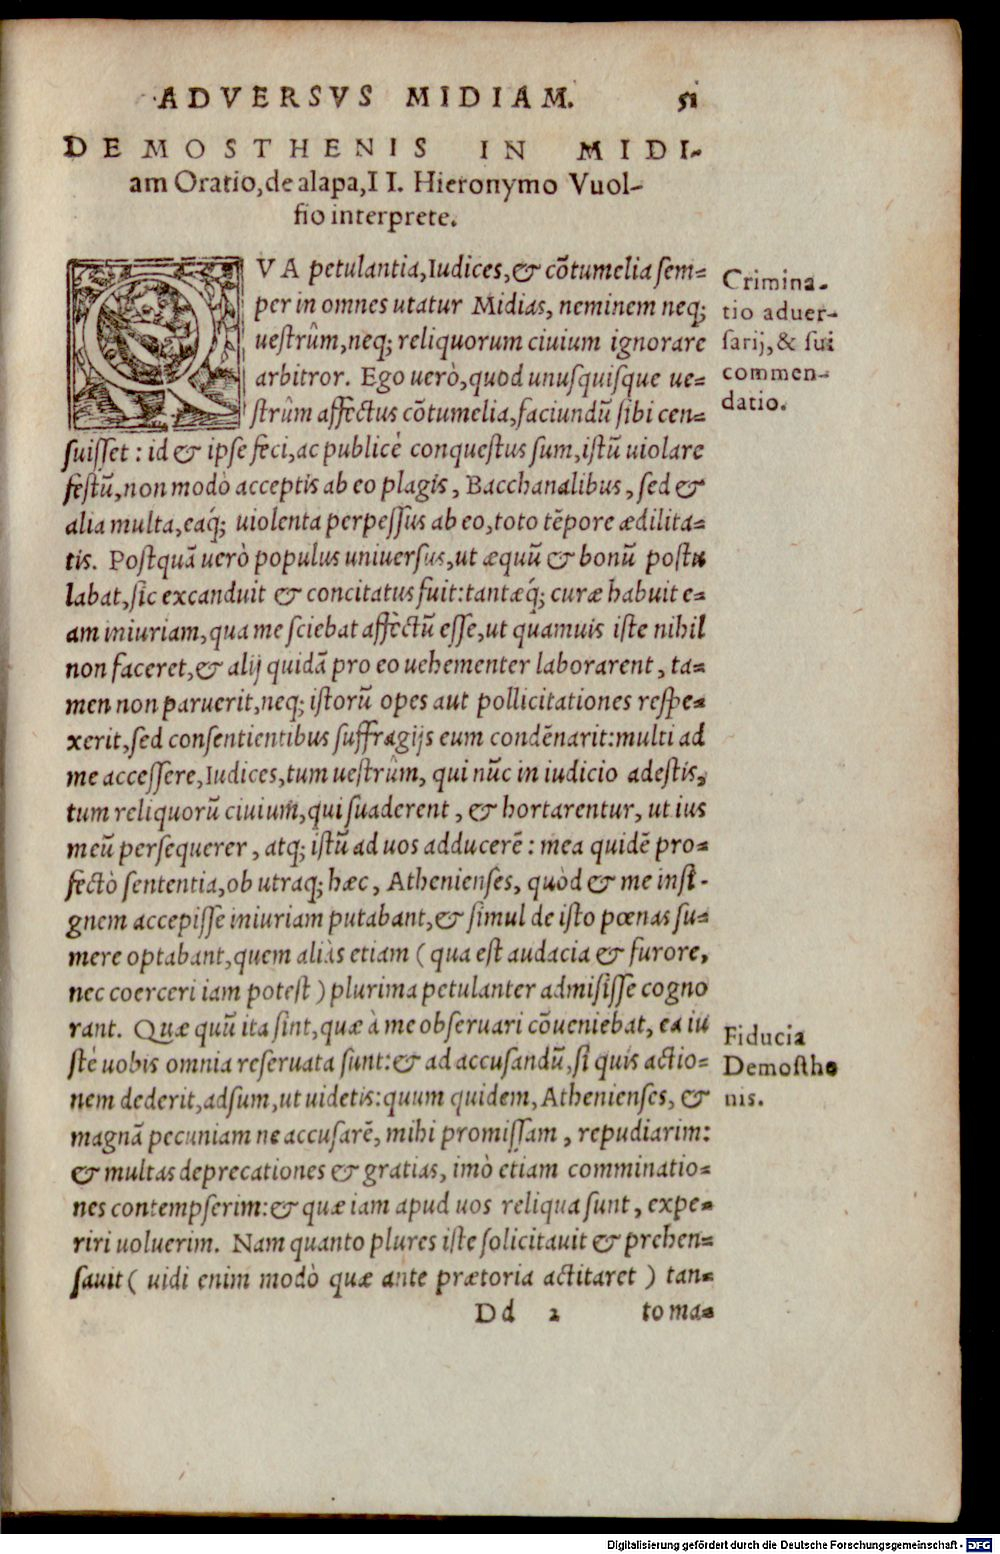 ADVERSVS MIDIAM. 51
DEMOSTHENIS IN MIDI-
am Oratio, de alapa, II. Hieronymo Vuol-
fio interprete.
QVA petulantia, Iudices, & cõtumelia sem-
per in omnes utatur Midias, neminem neq;
uestrûm, neq; reliquorum ciuium ignorare
arbitror. Ego uerò, quod unusquisque ue-
strûm affectus cõtumelia, faciundũ sibi cen-
suisset: id & ipse feci, ac publicè conquestus sum, istũ uiolare
festũ, non modò acceptis ab eo plagis, Bacchanalibus, sed &
alia multa, eaq́; uiolenta perpessus ab eo, toto tẽpore ædilita-
tis. Postquã uerò populus uniuersus, ut æquũ & bonũ postu
labat, sic excanduit & concitatus fuit: tantæq́; curæ habuit e-
am iniuriam, qua me sciebat affectũ esse, ut quamuis iste nihil
non faceret, & alij quidã pro eo uehementer laborarent, ta-
men non paruerit, neq; istorũ opes aut pollicitationes respe-
xerit, sed consentientibus suffragijs eum condẽnarit: multi ad
me accessere, Iudices, tum uestrûm, qui nũc in iudicio adestis,
tum reliquorũ ciuium, qui suaderent, & hortarentur, ut ius
meũ persequerer, atq; istũ ad uos adducerẽ: mea quidẽ pro-
fectò sententia, ob utraq; hæc, Athenienses, quòd & me insi-
gnem accepisse iniuriam putabant, & simul de isto pœnas su-
mere optabant, quem aliàs etiam (qua est audacia & furore,
nec coerceri iam potest) plurima petulanter admisisse cogno
rant. Quæ quũ ita sint, quæ à me obseruari cõueniebat, ea iu
stè uobis omnia reseruata sunt: & ad accusandũ, si quis actio-
nem dederit, adsum, ut uidetis: quum quidem, Athenienses, &
magnã pecuniam ne accusarẽ, mihi promissam, repudiarim:
& multas deprecationes & gratias, imò etiam comminatio-
nes contempserim: & quæ iam apud uos reliqua sunt, expe-
riri uoluerim. Nam quanto plures iste solicitauit & prehen-
sauit (uidi enim modò quæ ante prætoria actitaret) tan-
Dd 2 to ma-
Crimina-
tio aduer-
sarij, & sui
commen-
datio.
Fiducia
Demosthe
nis.
Digitalisierung gefördert durch die Deutsche Forschungsgemeinschaft - DFG